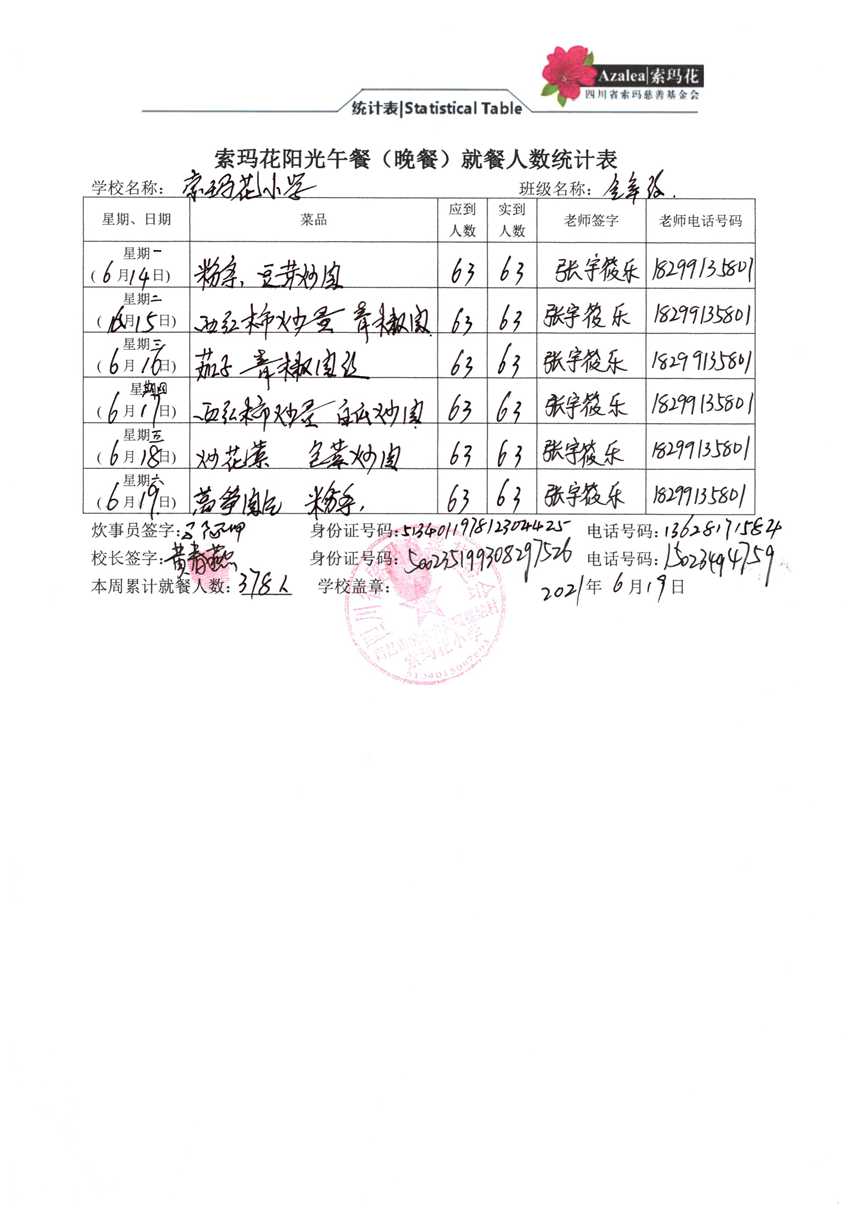 Azalea|索玛花
四川省索玛慈善基金会
统计表|Statistical Table
索玛花阳光午餐（晚餐）就餐人数统计表
学校名称： 索玛花小学 班级名称： 全年级.
星期、日期 菜品 应到人数 实到人数 老师签字 老师电话号码
星期一 (6月14日) 粉条, 豆芽炒肉 63 63 张宇筱乐 18299135801
星期二 (6月15日) 西红柿炒蛋 青椒肉 63 63 张宇筱乐 18299135801
星期三 (6月16日) 茄子 青椒肉丝 63 63 张宇筱乐 18299135801
星期四 (6月17日) 西红柿炒蛋 白瓜炒肉 63 63 张宇筱乐 18299135801
星期五 (6月18日) 炒花菜 包菜炒肉 63 63 张宇筱乐 18299135801
星期六 (6月19日) 莴笋肉片 粉条. 63 63 张宇筱乐 18299135801
炊事员签字: 身份证号码:513401197812304425 电话号码:13628171584
校长签字:黄春燕 身份证号码:500235199308297526 电话号码:15023494759
本周累计就餐人数:378人 学校盖章: 2021年6月19日
索玛花小学